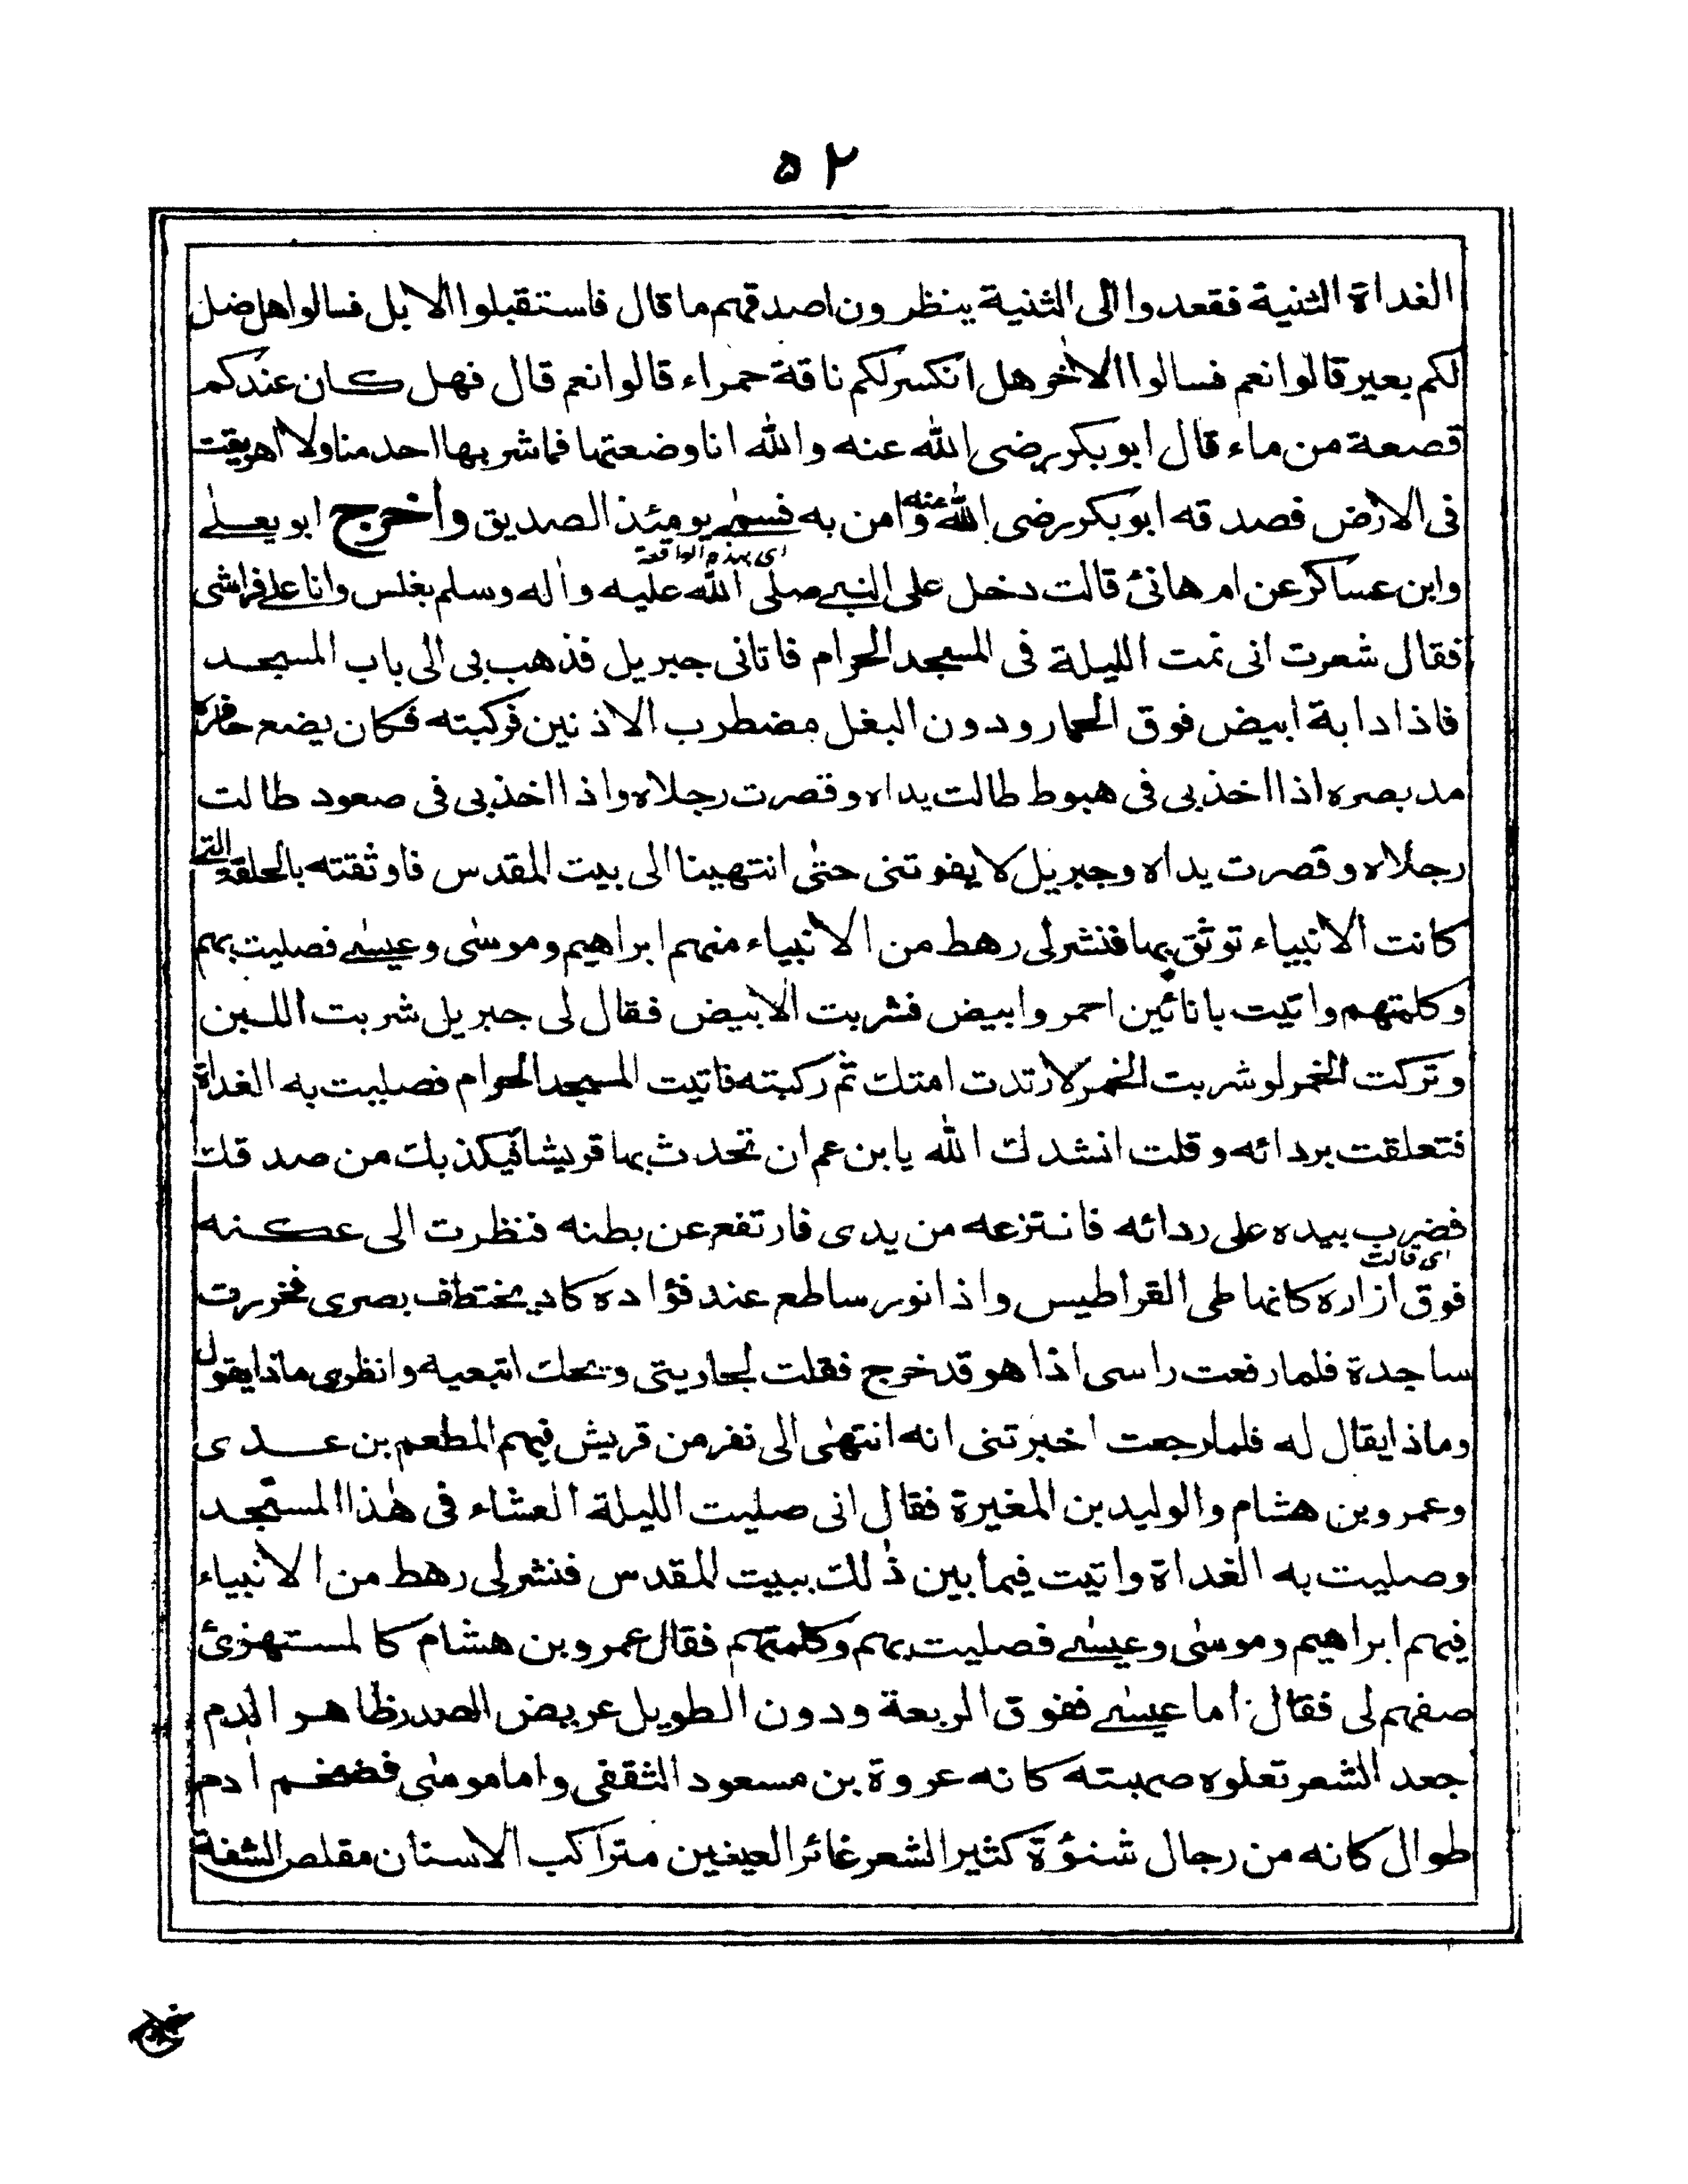 ٥٢
الغداة الثنية فقعدوا الى الثنية ينظرون اصدقهم ما قال فاستقبلوا الابل فسالوا هل ضل
لكم بعير قالوا نعم فسالوا الاٰخر هل انكسر لكم ناقة حمراء قالوا نعم قال فهل كان عندكم
قصعة من ماء قال ابو بكر رضى الله عنه والله انا وضعتها فما شربها احد منا ولا اهريقت
فى الارض فصدقه ابو بكر رضى الله عنه واٰمن به فسمى يومئذ الصديق واخرج ابو يعلى
اى بهذه الواقعة
وابن عساكر عن ام هانئ قالت دخل على النبى صلى الله عليه واٰله وسلم بغلس وانا على فراشى
فقال شعرت انى نمت الليلة فى المسجد الحرام فاتانى جبريل فذهب بى الى باب المسجد
فاذا دابة ابيض فوق الحمار ودون البغل مضطرب الاذنين فركبته فكان يضع حافره
مد بصره اذا اخذ بى فى هبوط طالت يداه وقصرت رجلاه واذا اخذ بى فى صعود طالت
رجلاه وقصرت يداه وجبريل لا يفوتنى حتٰى انتهينا الى بيت المقدس فاوثقته بالحلقة التى
كانت الانبياء توثق بها فنشر لى رهط من الانبياء منهم ابراهيم وموسٰى وعيسٰى فصليت بهم
وكلمتهم واتيت بانائين احمر وابيض فشربت الابيض فقال لى جبريل شربت اللبن
وتركت الخمر لو شربت الخمر لارتدت امتك ثم ركبته فاتيت المسجد الحرام فصليت به الغداة
فتعلقت بردائه وقلت انشدك الله يا بن عم ان تحدث بها قريشا فيكذبك من صدقك
فضرب بيده على ردائه فانتزعه من يدى فارتفع عن بطنه فنظرت الى عكنه
اى قالت
فوق ازاره كانها طى القراطيس واذا نور ساطع عند فؤاده كاد يختطف بصرى فخررت
ساجدة فلما رفعت راسى اذا هو قد خرج فقلت لجاريتى ويحك اتبعيه وانظرى ماذا يقول
وماذا يقال له فلما رجعت اخبرتنى انه انتهٰى الى نفر من قريش فيهم المطعم بن عدى
وعمرو بن هشام والوليد بن المغيرة فقال انى صليت الليلة العشاء فى هٰذا المسجد
وصليت به الغداة واتيت فيما بين ذٰلك ببيت المقدس فنشر لى رهط من الانبياء
فيهم ابراهيم وموسٰى وعيسٰى فصليت بهم وكلمتهم فقال عمرو بن هشام كالمستهزئ
صفهم لى فقال اما عيسٰى ففوق الربعة ودون الطويل عريض الصدر ظاهر الدم
جعد الشعر تعلوه صهبته كانه عروة بن مسعود الثقفى واما موسٰى فضخم اٰدم
طوال كانه من رجال شنؤة كثير الشعر غائر العينين متراكب الاسنان مقلص الشفة